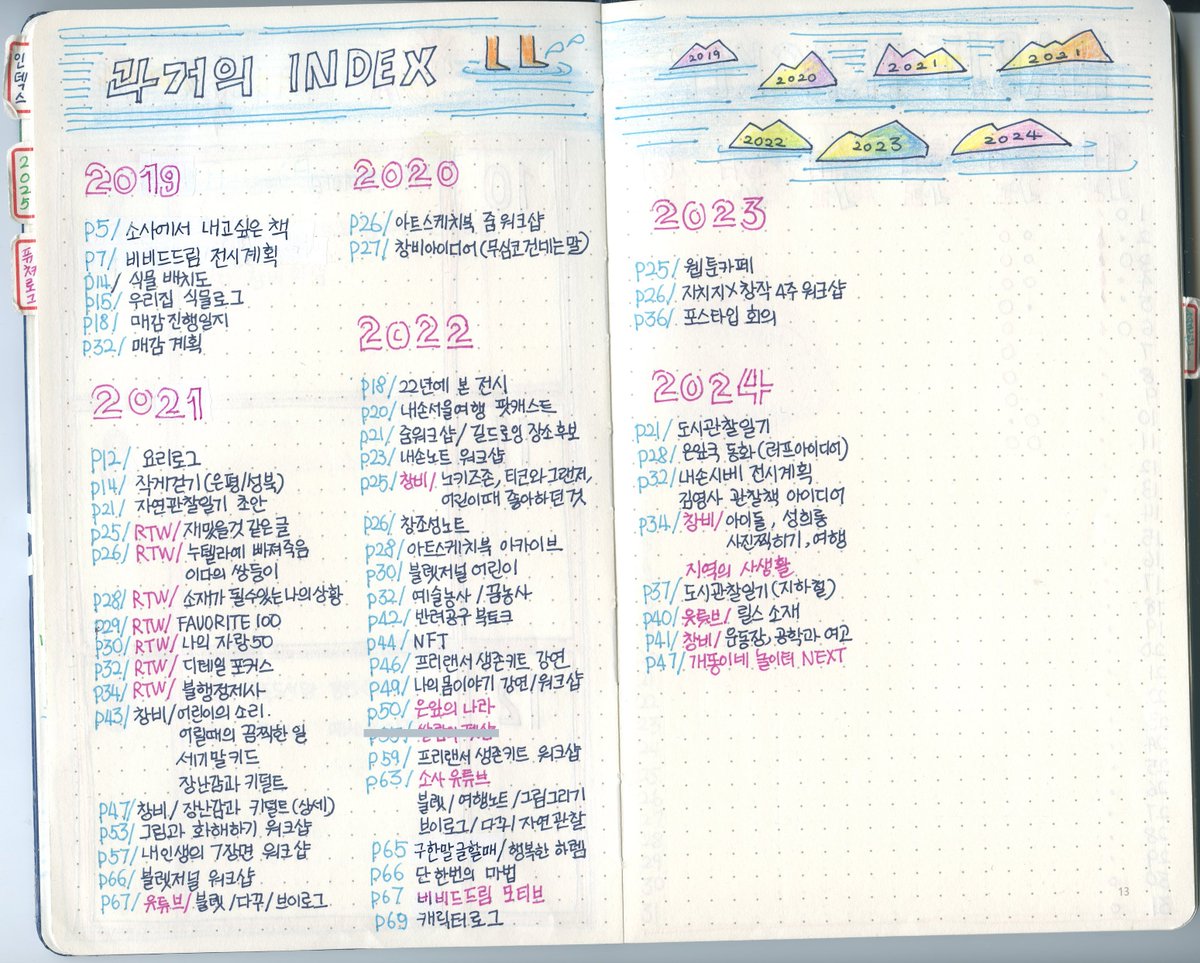 인덱스
2025
퓨처로그
과거의 INDEX
2019
p5/ 소사에서 내고싶은 책
p7/ 비비드드림 전시계획
p14/ 식물 배치도
p15/ 우리집 식물로그
p18/ 매감진행일지
p32/ 매감 계획
2020
p26/ 아트스케치북 줌 워크샵
p27/ 창비아이디어(무심코건네는말)
2021
p12/ 요리로그
p14/ 작게걷기(은평/성북)
p21/ 자연관찰일기 초안
p25/ RTW/ 재밌을것 같은 글
p26/ RTW/ 누텔라에 빠져죽음
이다의 쌍둥이
p28/ RTW/ 소재가 될수있는 나의상황
p29/ RTW/ FAVORITE 100
p30/ RTW/ 나의 자랑50
p32/ RTW/ 디테일 포커스
p34/ RTW/ 불행정제사
p43/ 창비/어린이의 소리
어릴때의 끔찍한 일
세기말키드
장난감과 키덜트
p47/ 창비/ 장난감과 키덜트(상세)
p53/ 그림과 화해하기 워크샵
p57/ 내인생의 7장면 워크샵
p66/ 불렛저널 워크샵
p67/ 유튜브/ 불렛/다꾸/브이로그
2022
p18/ 22년에 본 전시
p20/ 내손서울여행 팟캐스트
p21/ 줌워크샵/ 길드로잉 장소후보
p23/ 내손노트 워크샵
p25/ 창비/ 노키즈존, 티코와그랜저,
어린이때 좋아하던 것
p26/ 창조성노트
p28/ 아트스케치북 아카이브
p30/ 불렛저널 어린이
p32/ 예술농사/꿈농사
p42/ 반려공구 북토크
p44/ NFT
p46/ 프리랜서생존키트 강연
p49/ 나의몸이야기 강연/워크샵
p50/ 은잎의 나라
p59/ 프리랜서생존키트 워크샵
p63/ 소사 유튜브
불렛/여행노트/그림그리기
브이로그/다꾸/자연관찰
p65 구한말글할때/행복한 하렘
p66 단 한번의 마법
p67 비비드드림 모티브
p69 캐릭터로그
2019
2020
2021
2021
2022
2023
2024
2023
p25/ 웹툰카페
p26/ 지치지X창작 4주 워크샵
p36/ 포스타입 회의
2024
p21/ 도시관찰일기
p28/ 은잎국 동화(러프아이디어)
p32/ 내손시베 전시계획
김영사 관찰책 아이디어
p34/ 창비/ 아이돌, 성희롱
사진찍히기, 여행
지역의 사생활
p37/ 도시관찰일기(지하철)
p40/ 유튜브/ 릴스 소재
p41/ 창비/ 운동장, 공학과 여고
p47/ 개똥이네 놀이터 NEXT
13